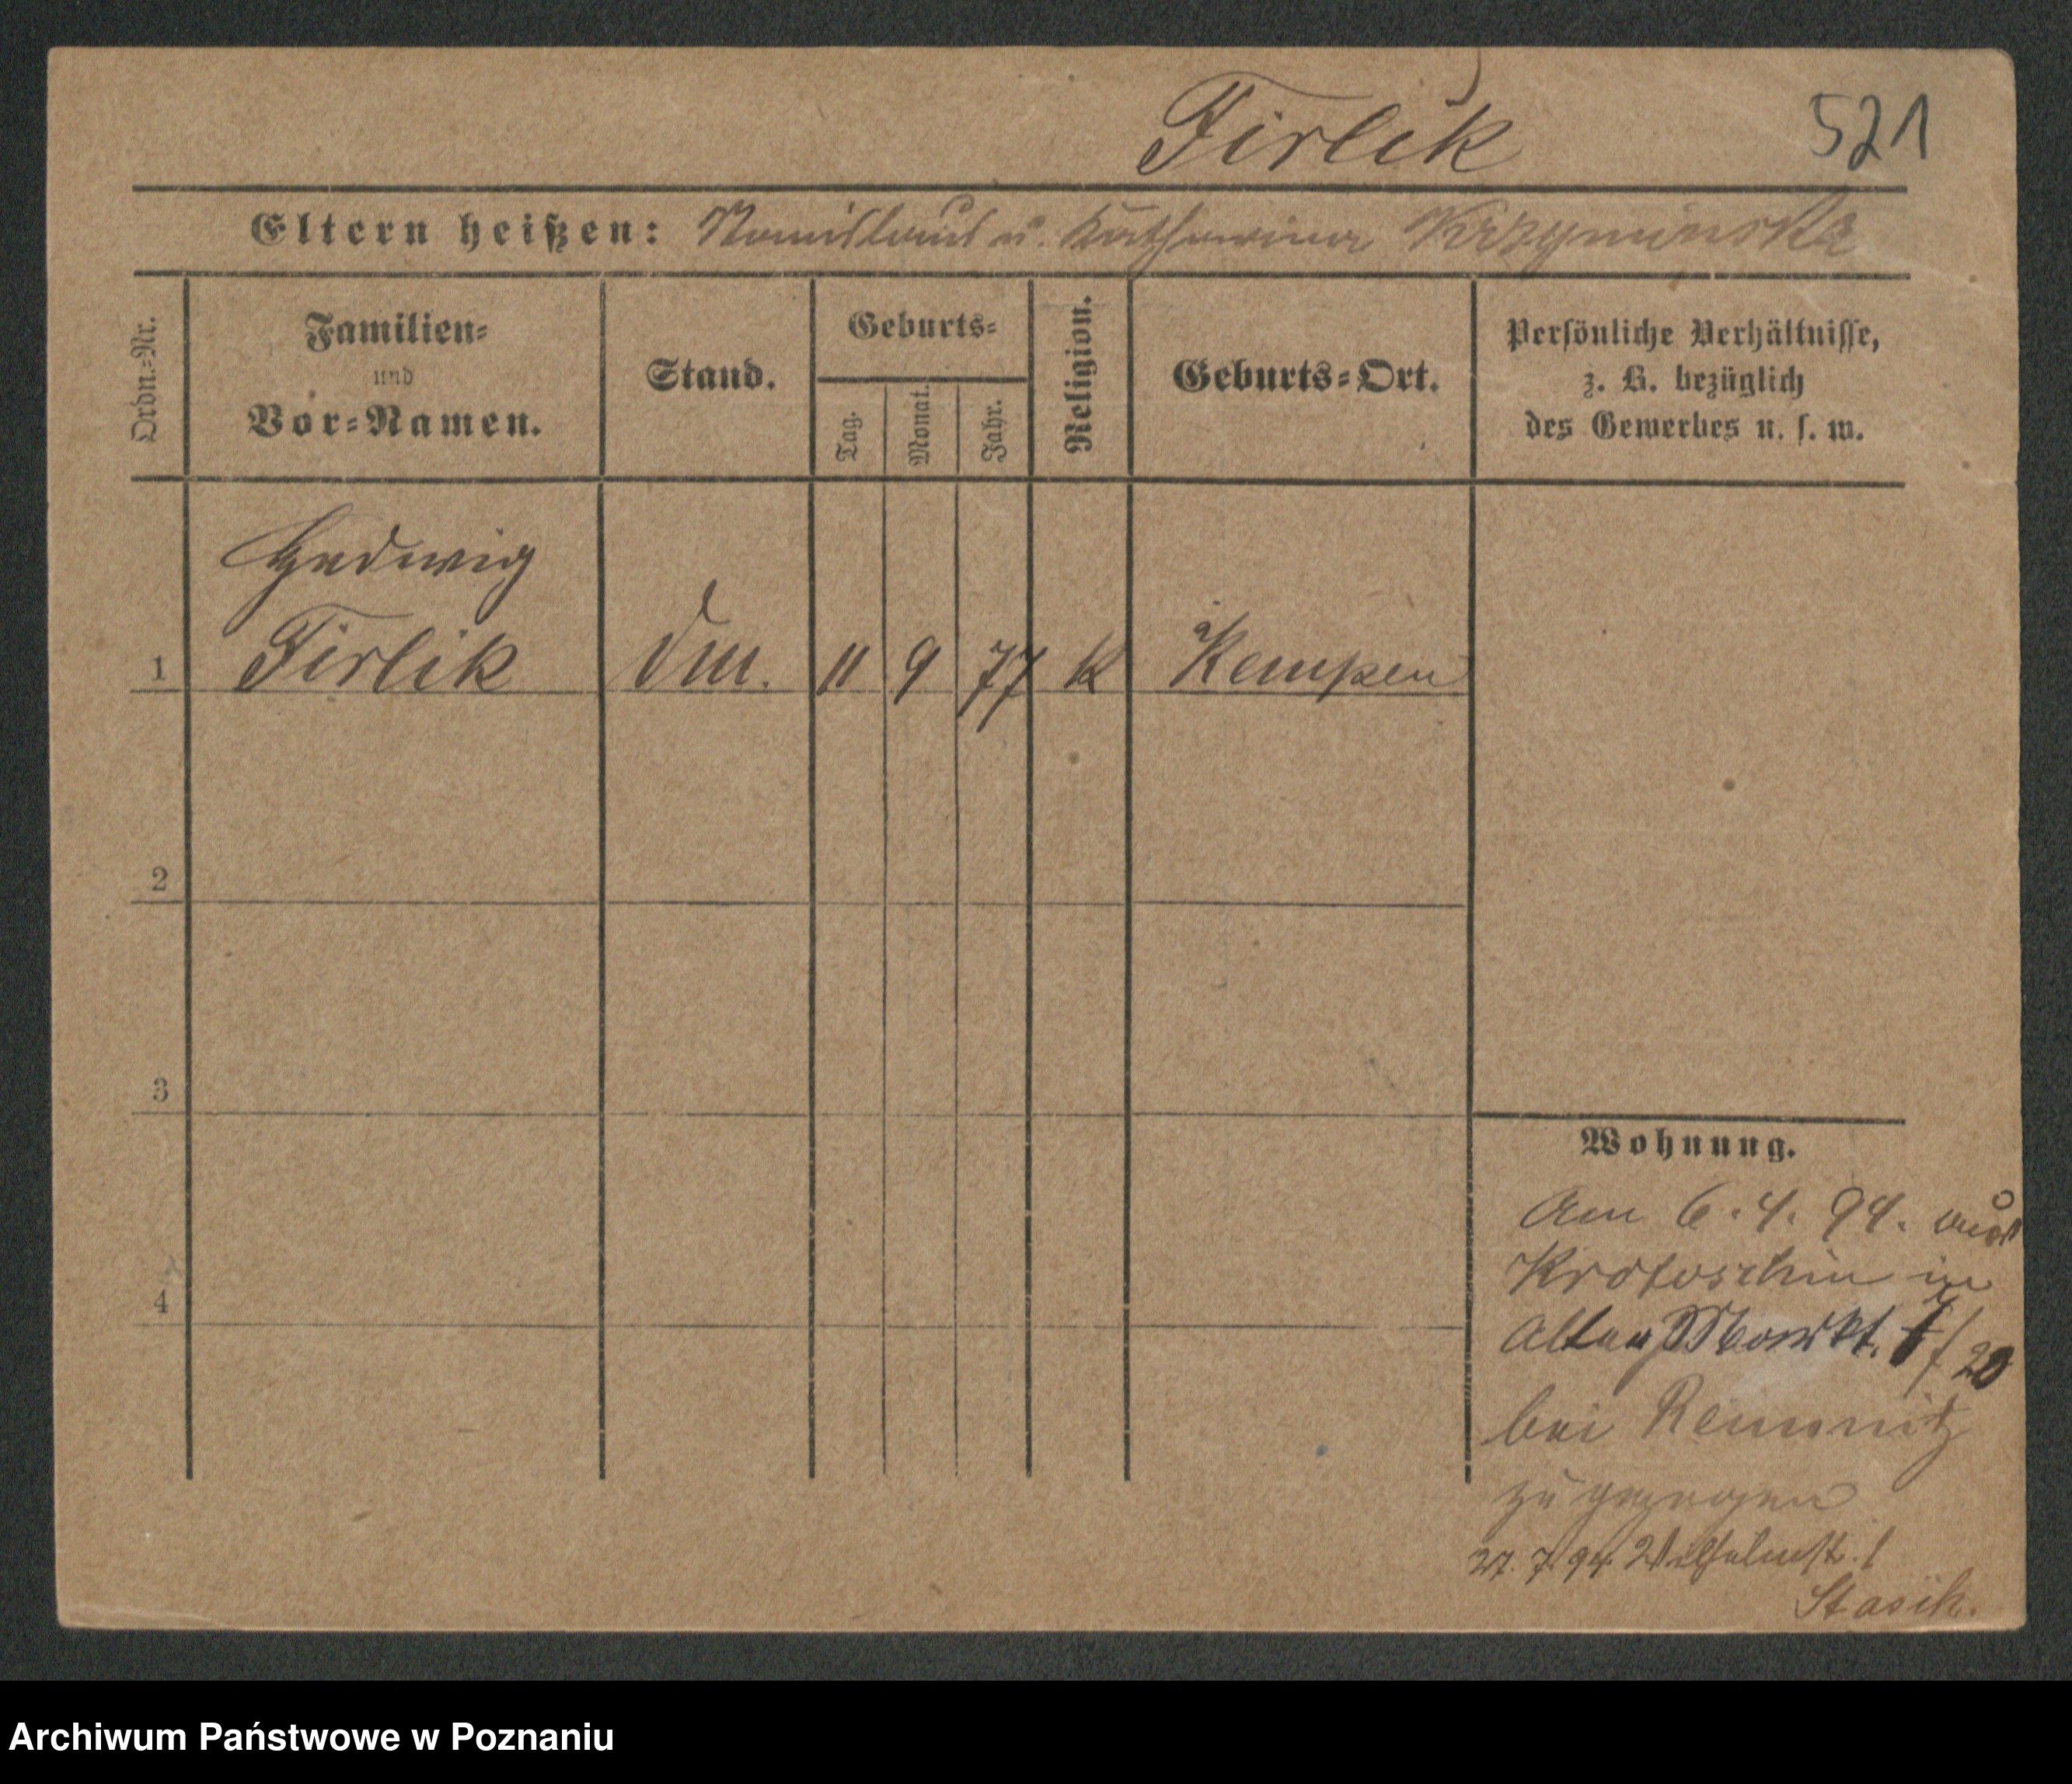 Firlik 521
Eltern heißen: u. Katharina Krzyminska
Ordn.-Nr.
Familien-
und
Vor-Namen.
Stand.
Geburts-
Tag.
Monat.
Jahr.
Religion.
Geburts-Ort.
Persönliche Verhältnisse,
z. B. bezüglich
des Gewerbes u. s. w.
Hedwig
1 Firlik 11 9 77 k Kempen
2
3
4
Wohnung.
Am 6. 4. 94. aus
Krotoschin in
Alter Markt. /20
bei Remnitz
zugezogen
27. 7. 94. Wilhelmstr. 1
Stasik.
Archiwum Państwowe w Poznaniu